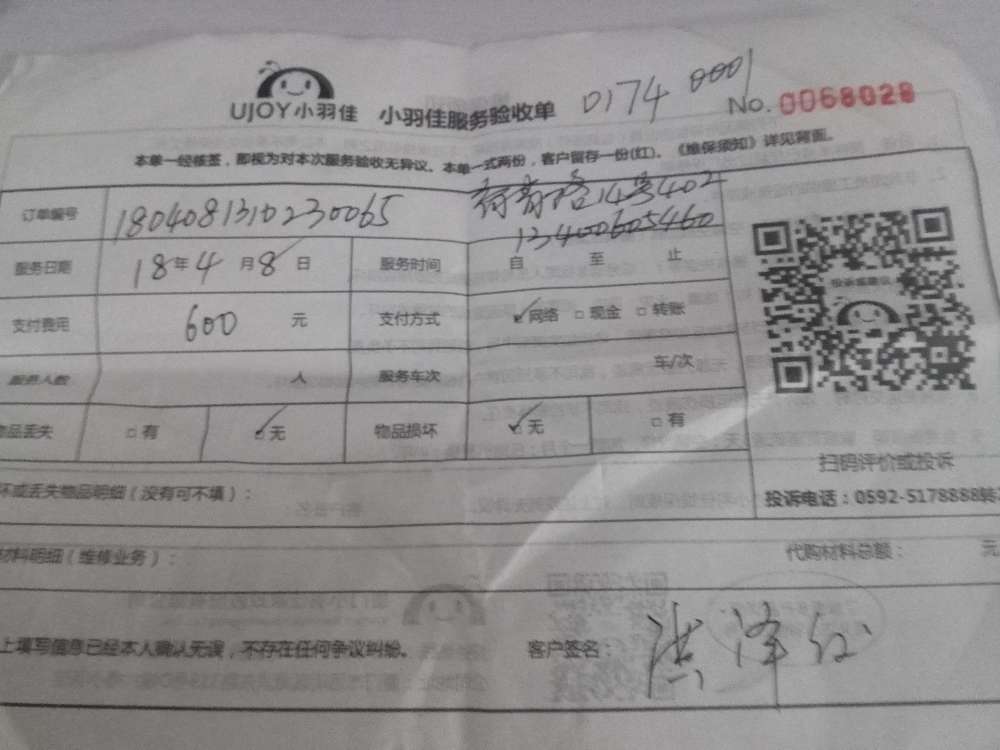 UJOY小羽佳 小羽佳服务验收单 0174 0001 No. 0068028
本单一经核签，即视为对本次服务验收无异议。本单一式两份，客户留存一份(红)。《维保须知》详见背面。
订单编号 1804081310230065 路14号402
13400605460
服务日期 18年4月8日 服务时间 自 至 止
支付费用 600 元 支付方式 ✓网络 □现金 □转账
服务人数 人 服务车次 车/次
物品丢失 □有 ✓无 物品损坏 ✓无 □有
投说或建议
扫码评价或投诉
坏或丢失物品明细（没有可不填）：
投诉电话：0592-5178888转
材料明细（维修业务）： 代购材料总额： 元
上填写信息已经本人确认无误，不存在任何争议纠纷。 客户签名： 洪泽